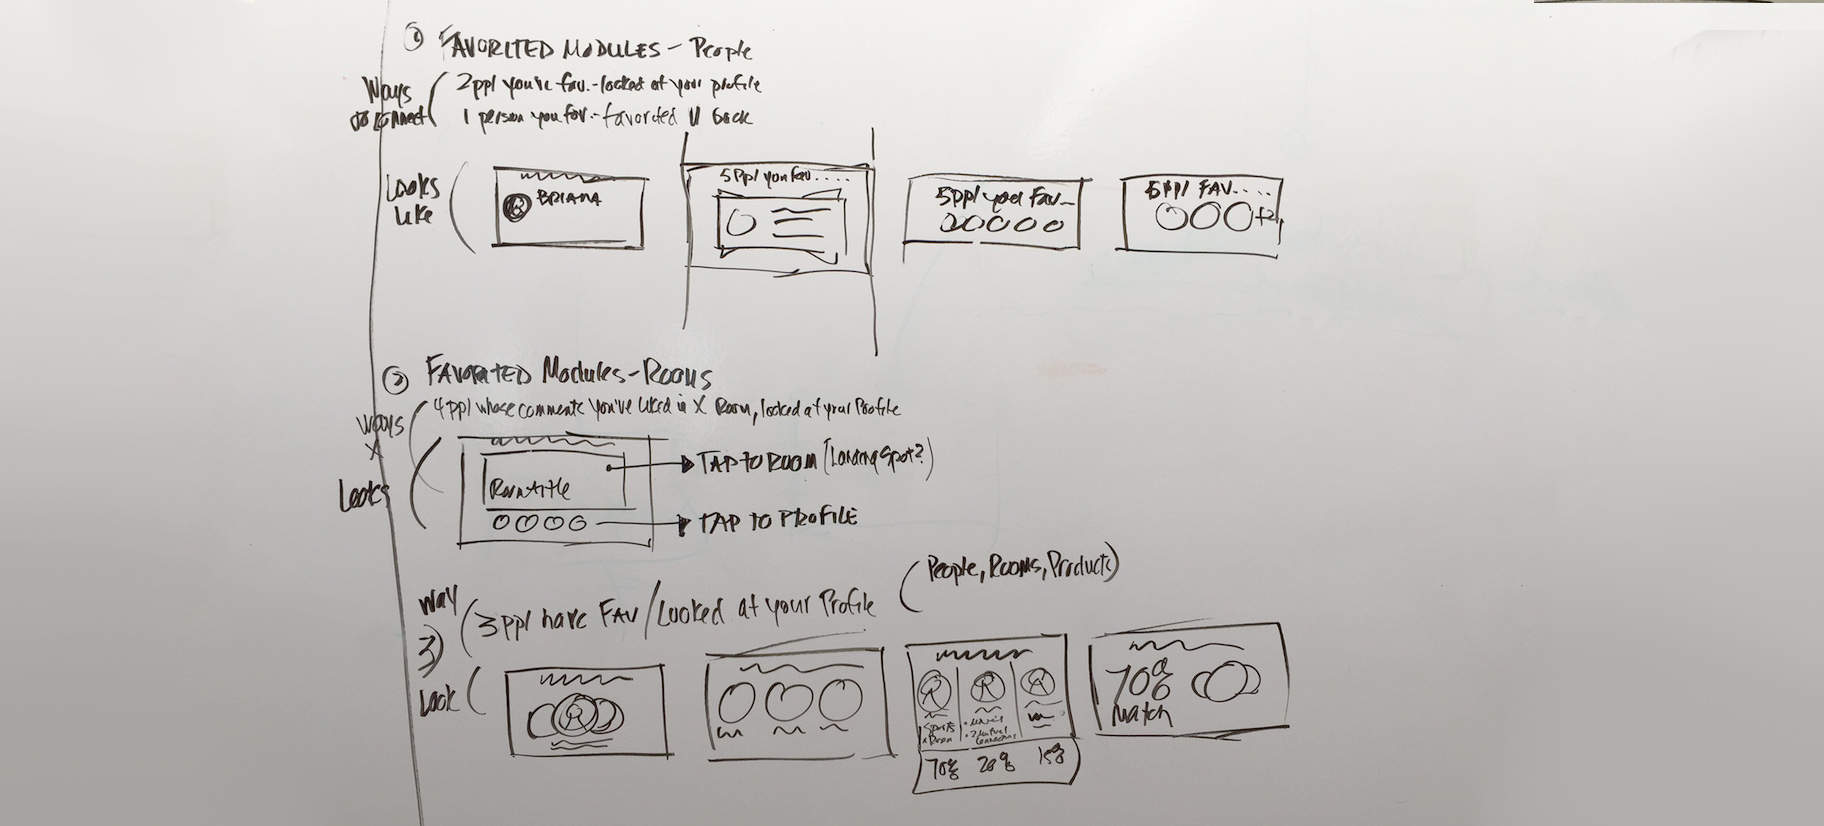 ① FAVORITED MODULES - People
Ways to connect
2ppl you've fav. - looked at your profile
1 person you fav. - favorited U back
Looks Like
BRIANA
5 ppl you fav.....
5ppl you Fav...
5ppl FAV.....
+2
② FAVORITED Modules - ROOMS
Ways
4ppl whose comments you've liked in X Room, looked at your Profile
Looks
Room title
TAP TO ROOM (Landing Spot?)
TAP TO PROFILE
Way
3)
3 ppl have FAV / Looked at your Profile
(People, Rooms, Products)
Look
R
R R R
Sports
Room
70% 20% 15%
70%
Match